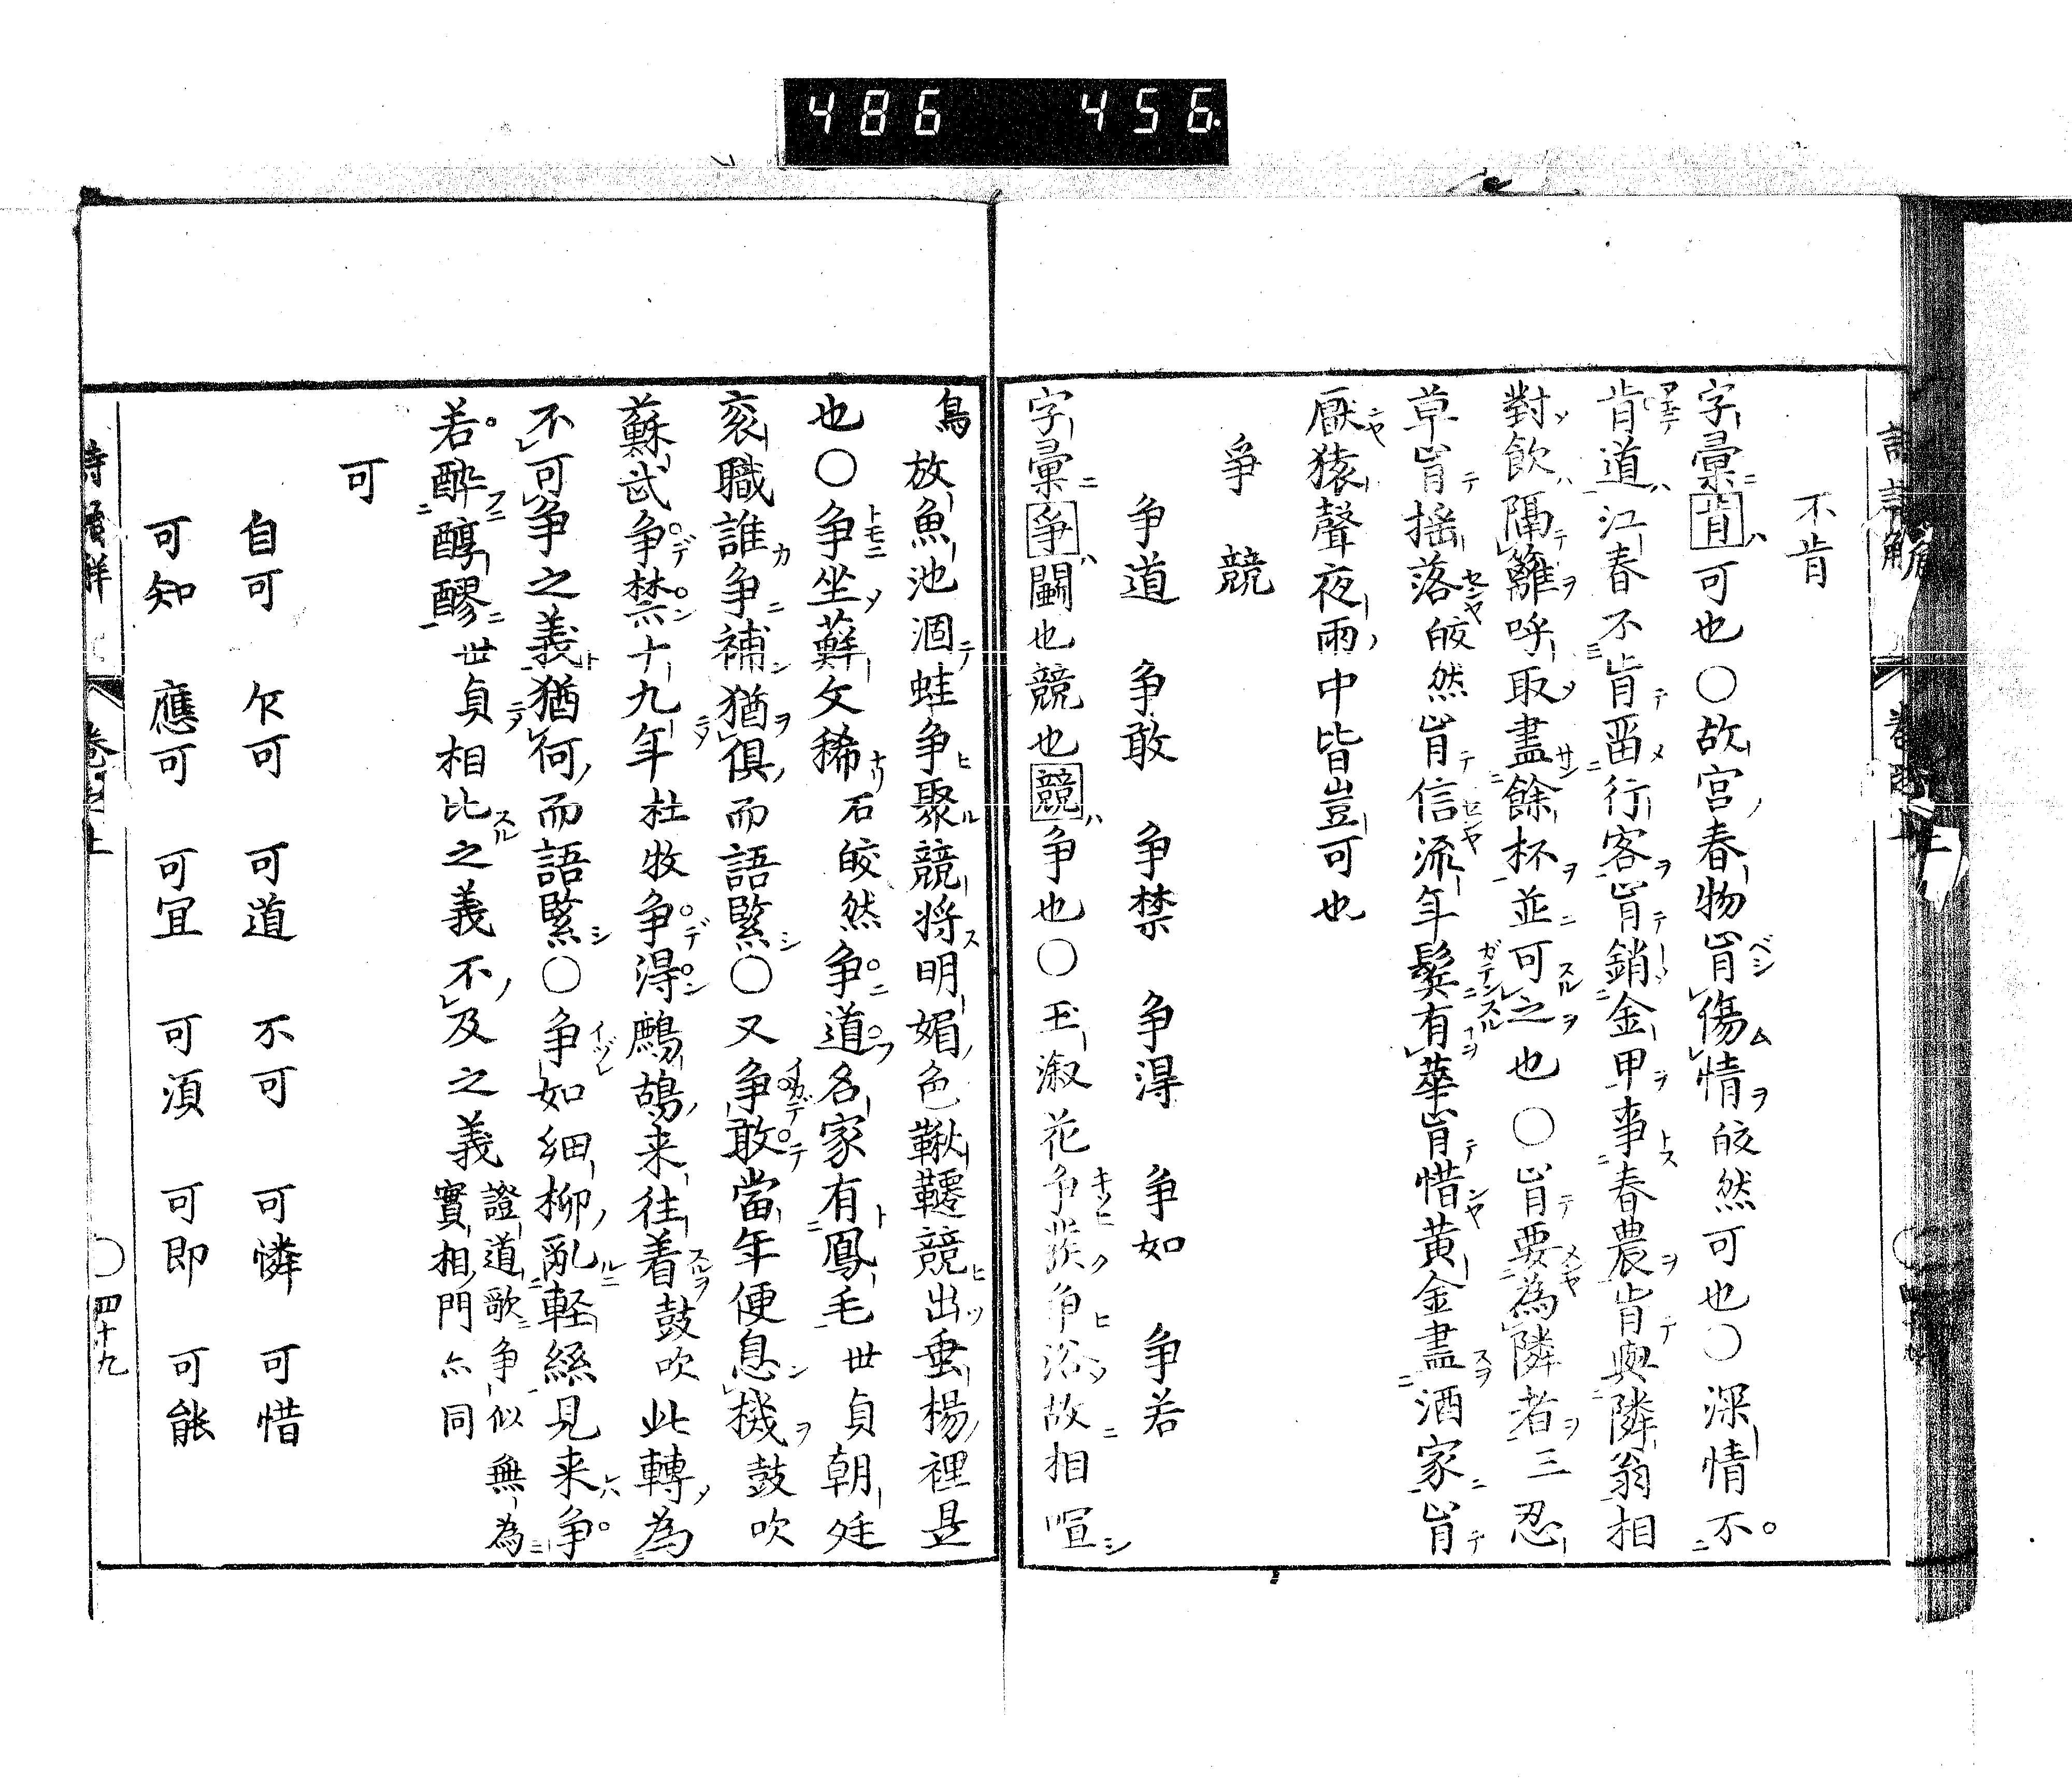 486 456.
不肯
字彙肯可也〇故宮春物肯傷情皎然可也〇深情不
肯道江春不肯畱行客肯銷金甲事春農肯與隣翁相
對飲隔籬呼取盡餘杯並可之也〇肯要為隣者三忍
草肯揺落皎然肯信流年鬂有華肯惜黄金盡酒家肯
厭猿聲夜雨中皆豈可也
爭 競
争道 争敢 争禁 争得 争如 争若
字彙爭鬭也競也競争也〇玉淑花争發争浴故相喧
鳥放魚池涸蛙争聚競将明媚色鞦韆競出垂楊裡是
也〇争坐蘚文稀石皎然争道名家有鳳毛世貞朝廷
衮職誰争補猶俱而語緊〇又争敢當年便息機鼓吹
蘇武争禁十九年杜牧争得鷓鴣来往着鼓吹此轉為
不可争之義猶何而語緊〇争如細柳乱軽絲見来争
若酔醇醪世貞相比之義不及之義證道歌争似無為實相門亦同
可
自可 欠可 可道 不可 可憐 可惜
可知 應可 可宜 可須 可即 可能
四十九